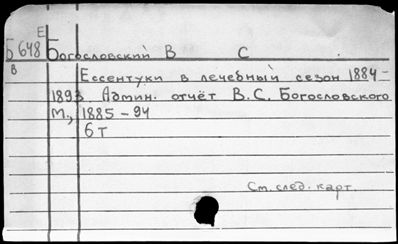 Е
Б 648 Богословский В С
В
Ессентуки в лечебный сезон 1884-
1893 Админ. отчёт В.С. Богословского
М., 1885-94
6 т
См. след. карт.